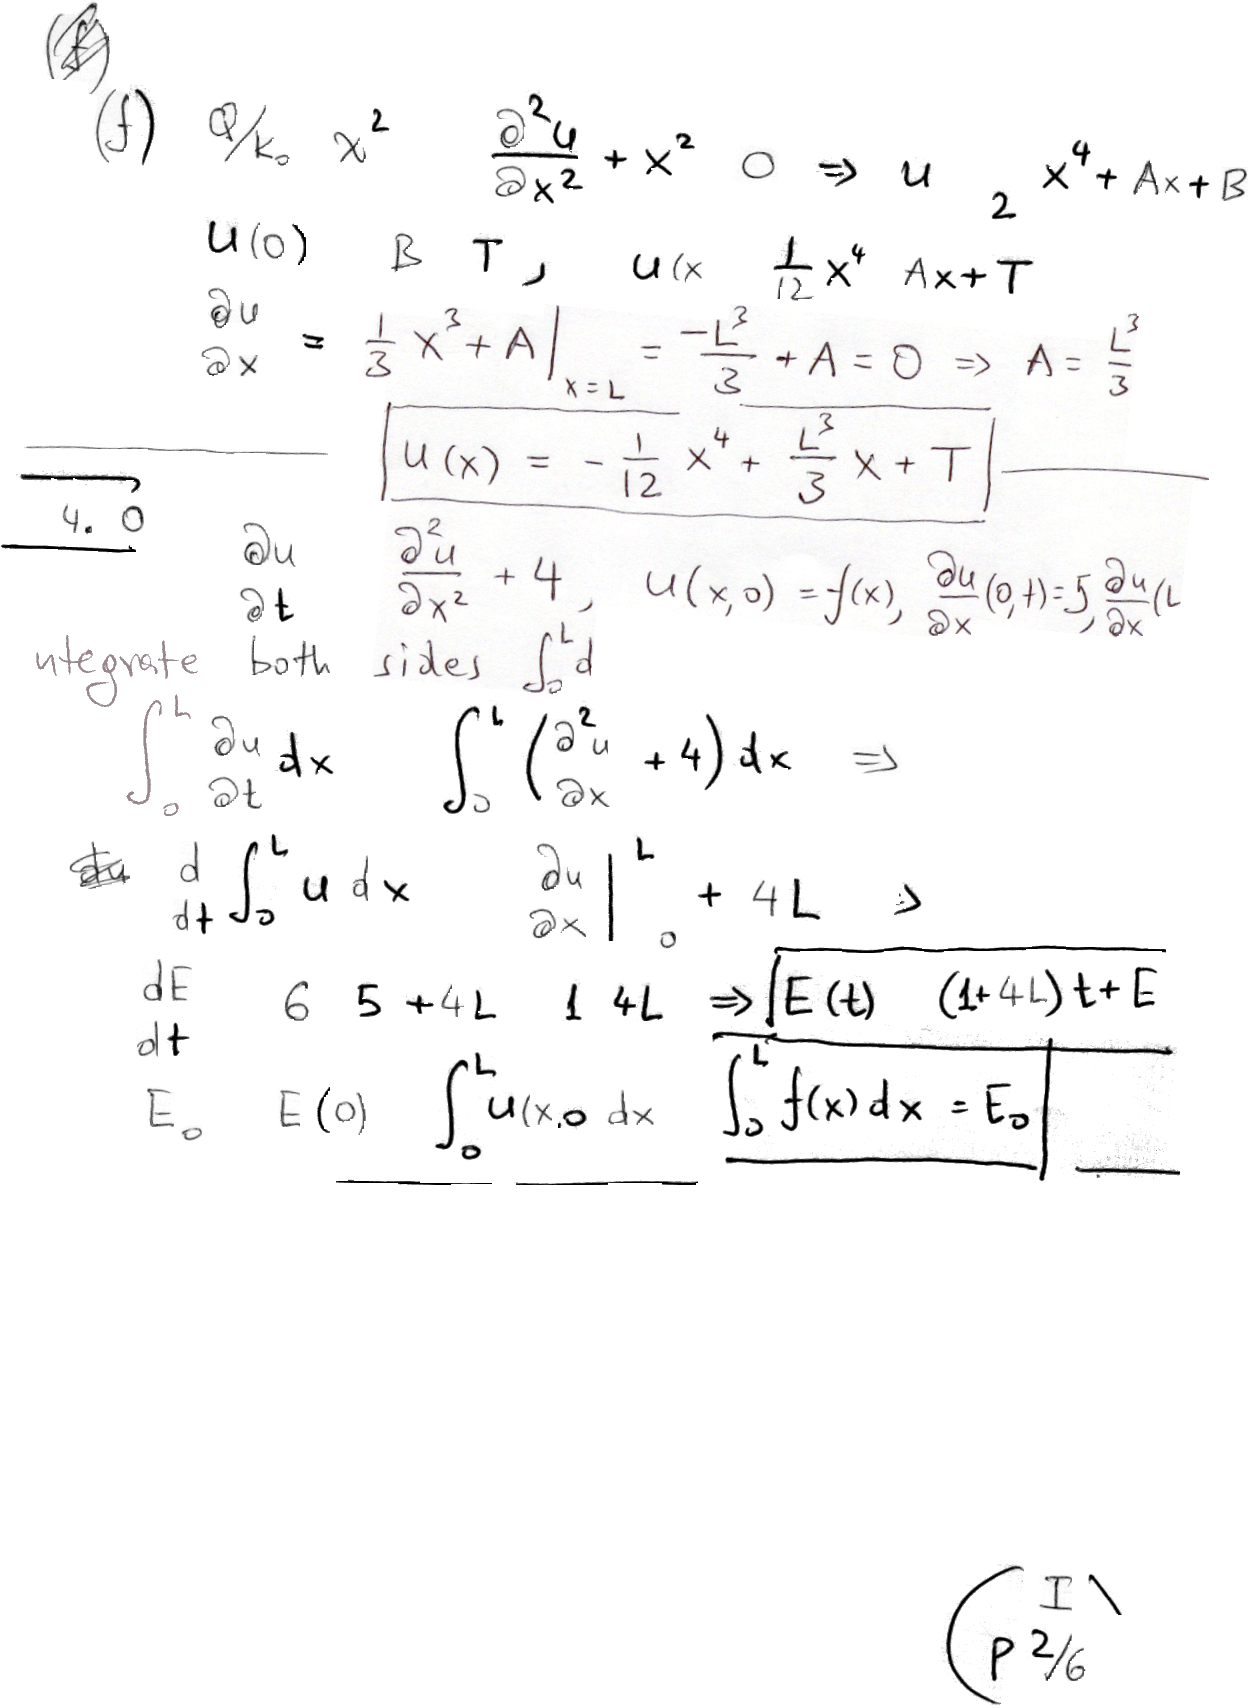 (f) Q/k₀ x² ∂²u/∂x² + x² 0 ⇒ u 2 x⁴ + Ax + B
u(0) B T, u(x 1/12 x⁴ Ax + T
∂u/∂x = 1/3 x³ + A |x=L = -L³/3 + A = 0 ⇒ A = L³/3
u(x) = - 1/12 x⁴ + L³/3 x + T
4. 0
∂u ∂t ∂²u/∂x² + 4, u(x,0) = f(x), ∂u/∂x (0,t) = 5, ∂u/∂x (L
ntegrate both sides ∫₀ᴸ d
∫₀ᴸ ∂u ∂t dx ∫₀ᴸ (∂²u ∂x + 4) dx ⇒
d dt ∫₀ᴸ u dx ∂u ∂x |₀ᴸ + 4L ⇒
dE dt 6 5 + 4L 1 4L ⇒ E(t) (1 + 4L) t + E
E₀ E(0) ∫₀ᴸ u(x,0 dx ∫₀ᴸ f(x) dx = E₀
I
p 2/6